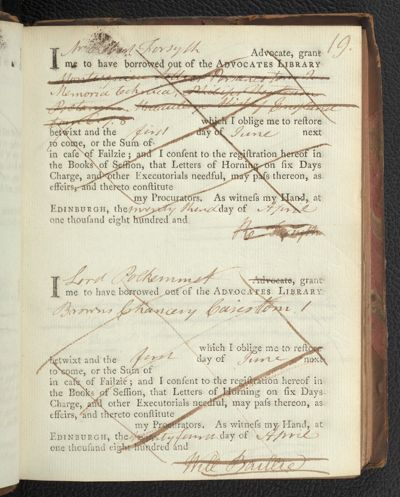 19.
I Mr Forsyth Advocate, grant
me to have borrowed out of the ADVOCATES LIBRARY
Memoria
which I oblige me to reſtore
betwixt and the first day of June next
to come, or the Sum of
in caſe of Failzie; and I conſent to the regiſtration hereof in
the Books of Seſſion, that Letters of Horning on ſix Days
Charge, and other Executorials needful, may paſs thereon, as
effeirs, and thereto conſtitute
my Procurators. As witneſs my Hand, at
EDINBURGH, the twenty third day of April
one thouſand eight hundred and
I Lord Polkemmet Advocate, grant
me to have borrowed out of the ADVOCATES LIBRARY
Browns Chancery Cases tom 1
which I oblige me to reſtore
betwixt and the first day of June next
to come, or the Sum of
in caſe of Failzie; and I conſent to the regiſtration hereof in
the Books of Seſſion, that Letters of Horning on ſix Days
Charge, and other Executorials needful, may paſs thereon, as
effeirs, and thereto conſtitute
my Procurators. As witneſs my Hand, at
EDINBURGH, the day of April
one thouſand eight hundred and
Will Baillie